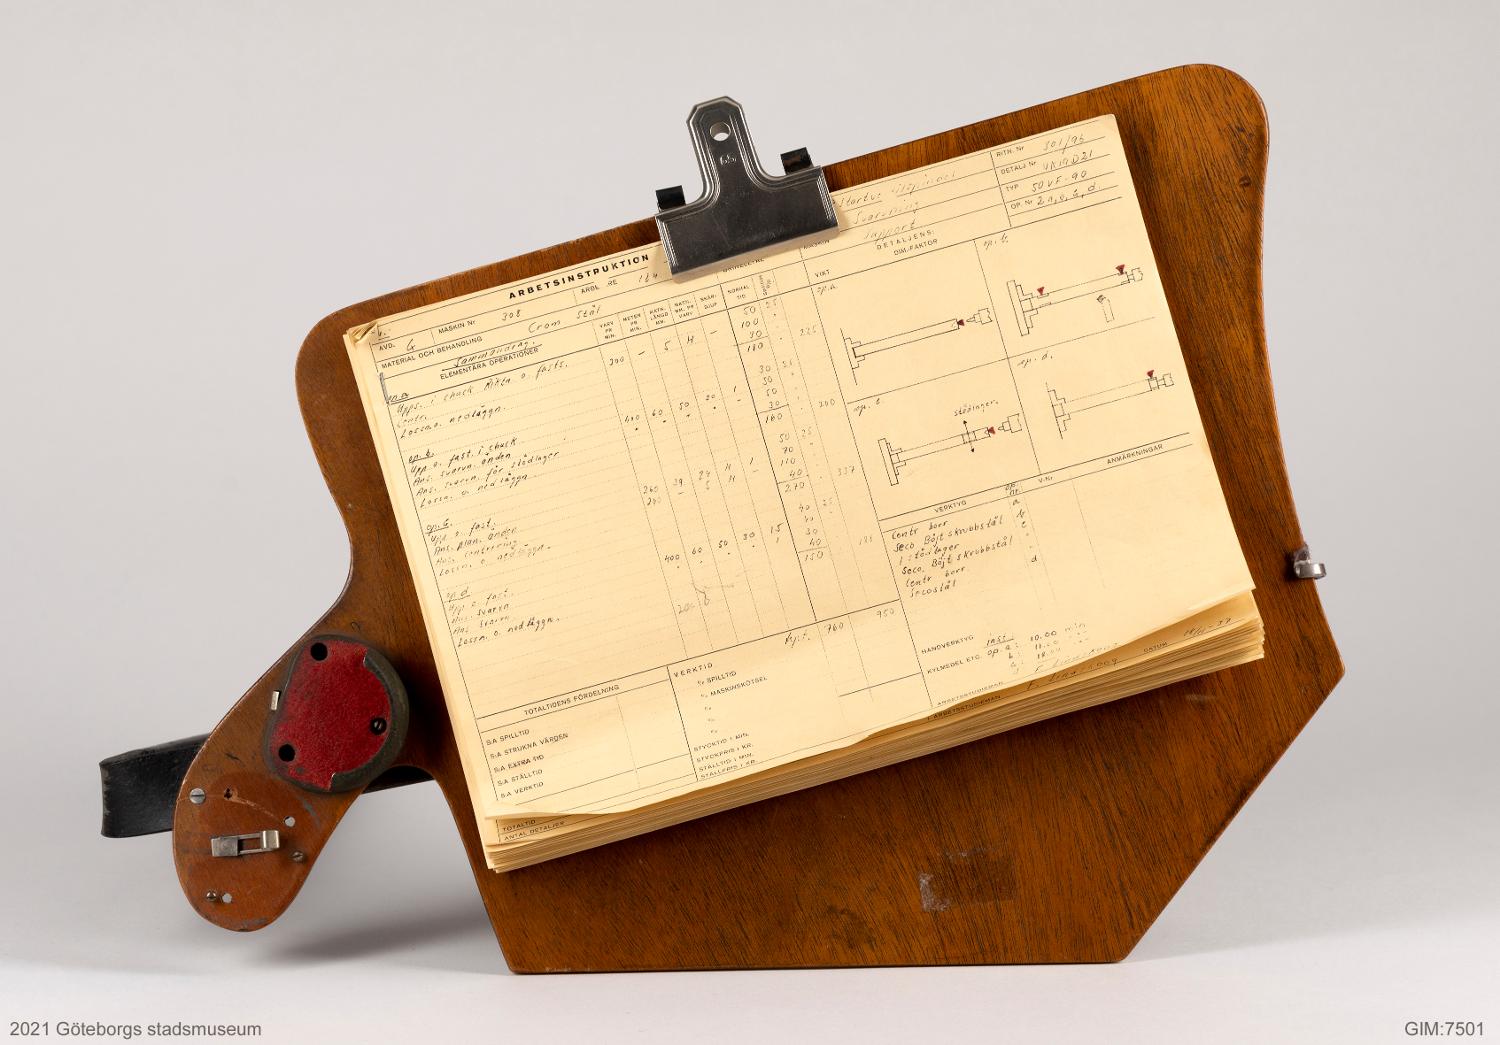 65
ARBETSINSTRUKTION
RITN. Nr 301/96
DETALJ Nr VK19D21
TYP 50VF-90
OP. Nr 2 a, b, c, d.
Svarvning
Support
AVD. G
MASKIN Nr 308
MATERIAL OCH BEHANDLING Crom Stål
Sammandrag.
ELEMENTÄRA OPERATIONER
VARV PR MIN.
METER PR MIN.
MATN. LÄNGD MM.
MATN. MM. PR VARV.
SKÄR- DJUP
NORMAL TID
VIKT
DETALJENS:
DIM.-FAKTOR
op.a
Upps. i chuck Rikta o. fasts. 200 – 5 H –
Centr.
Lossn.o. nedläggn.
50 25
100
30
180 225
op. b.
Upp. o. fast. i chuck 400 60 50 20 1
Ans. svarvn. änden
Ans. svarvn. för stödlager
Lossn. o. nedläggn.
30 25
50
50
30
160 200
op. c.
Upp. o. fast.
Ans. plan. änden 260 39 24 H 1
Ans. centrering 200 – 5 H –
Lossn. o. nedläggn.
50 25
70
110
40
270 337
op. d
Upp. o. fast.
Ans. svarvn 400 60 50 20 1.5
Ans. svarvn.
Lossn. o. nedläggn.
40 25
40
30
40
150 188
760 950
op.a
op. b.
op. c.
stödlager.
op. d.
VERKTYG
op. nr.
V-Nr
ANMÄRKNINGAR
Centr borr a
Seco Böjt skrubbstål b
1 stödlager
Seco. Böjt skrubbstål c
Centr borr
Secostål d
HANDVERKTYG
KYLMEDEL ETC.
inst.
op. a: 10.00 min
ARBETSSTUDIEMAN
DATUM
TOTALTIDENS FÖRDELNING
S:A SPILLTID
S:A STRUKNA VÄRDEN
S:A EXTRA TID
S:A STÄLLTID
S:A VERKTID
VERKTID
% SPILLTID
% MASKINSKÖTSEL
%
%
STYCKTID I MIN.
STYCKPRIS I KR.
STÄLLTID I MIN.
STÄLLPRIS I KR.
TOTALTID
ANTAL DETALJER
2021 Göteborgs stadsmuseum
GIM:7501